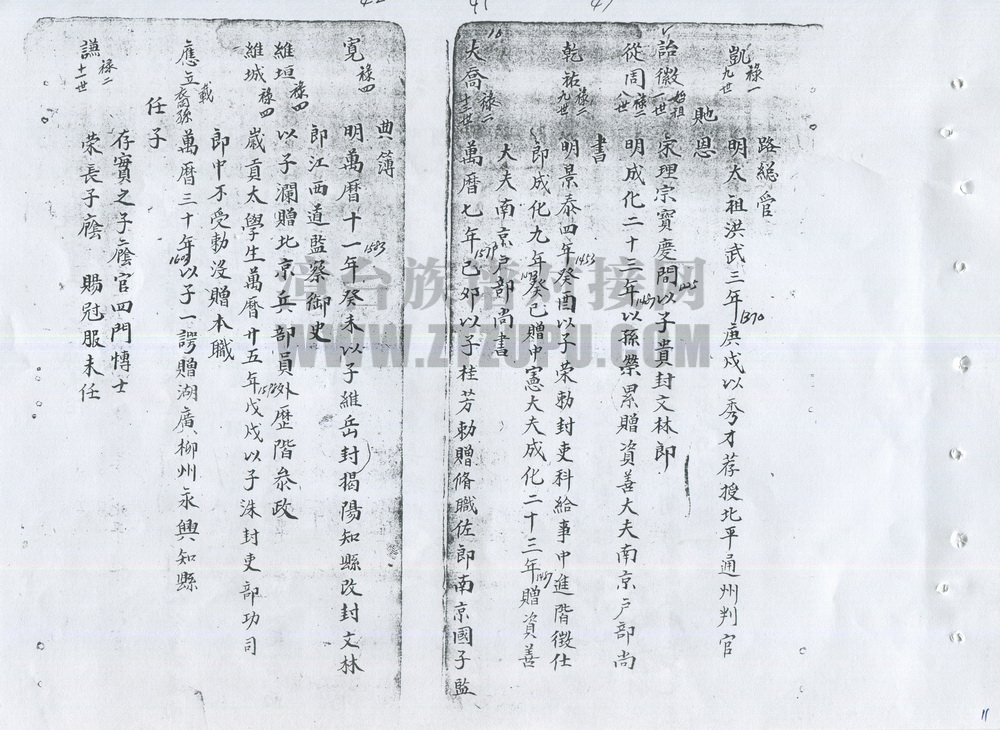 路總管
凱 祿一 九世 明太祖洪武三年庚戌以秀才荐授北平通州判官 1370
貤恩
詒徽 始祖 一世 宋理宗寶慶間以子貴封文林郎 1225
從周 祿二 八世 明成化二十三年以孫榮累贈資善大夫南京戶部尚 1487
書
乾祐 祿二 九世 明景泰四年癸酉以子荣勅封吏科給事中進階徵仕 1453
郎成化九年癸巳贈中憲大夫成化二十三年贈資善 1473 1487
大夫南京戶部尚書
大喬 祿一 十三世 萬曆七年己卯以子桂芳勅贈脩職佐郎南京國子監 1579
典簿
寬 祿四 明萬曆十一年癸未以子維岳封揭陽知縣改封文林 1583
郎江西道監察御史
維垣 祿四 以子瀾贈北京兵部員外歷階叅政
維城 祿四 歲貢太學生萬曆廿五年戊戌以子洙封吏部功司
郎中不受勅沒贈本職
應立 載 裔孫 萬曆三十年以子一諤贈湖廣柳州永興知縣
任子
存實之子廕官四門博士
讌 祿二 十一世 荣長子廕 賜冠服未任
澶台族譜对接网
WWW.ZTZUPU.COM
11